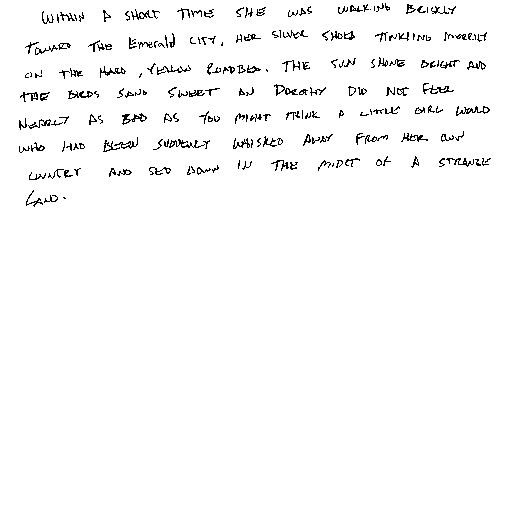 WITHIN A SHORT TIME SHE WAS WALKING BRISKLY
TOWARD THE Emerald CITY, HER SILVER SHOES TINKLING MERRILY
ON THE HARD, YELLOW ROADBED. THE SUN SHONE BRIGHT AND
THE BIRDS SANG SWEET AN DOROTHY DID NOT FEEL
NEARLY AS BAD AS YOU MIGHT THINK A LITTLE GIRL WOULD
WHO HAD BEEN SUDDENLY WHISKED AWAY FROM HER OWN
COUNTRY AND SED DOWN IN THE MIDST OF A STRANGE
LAND.